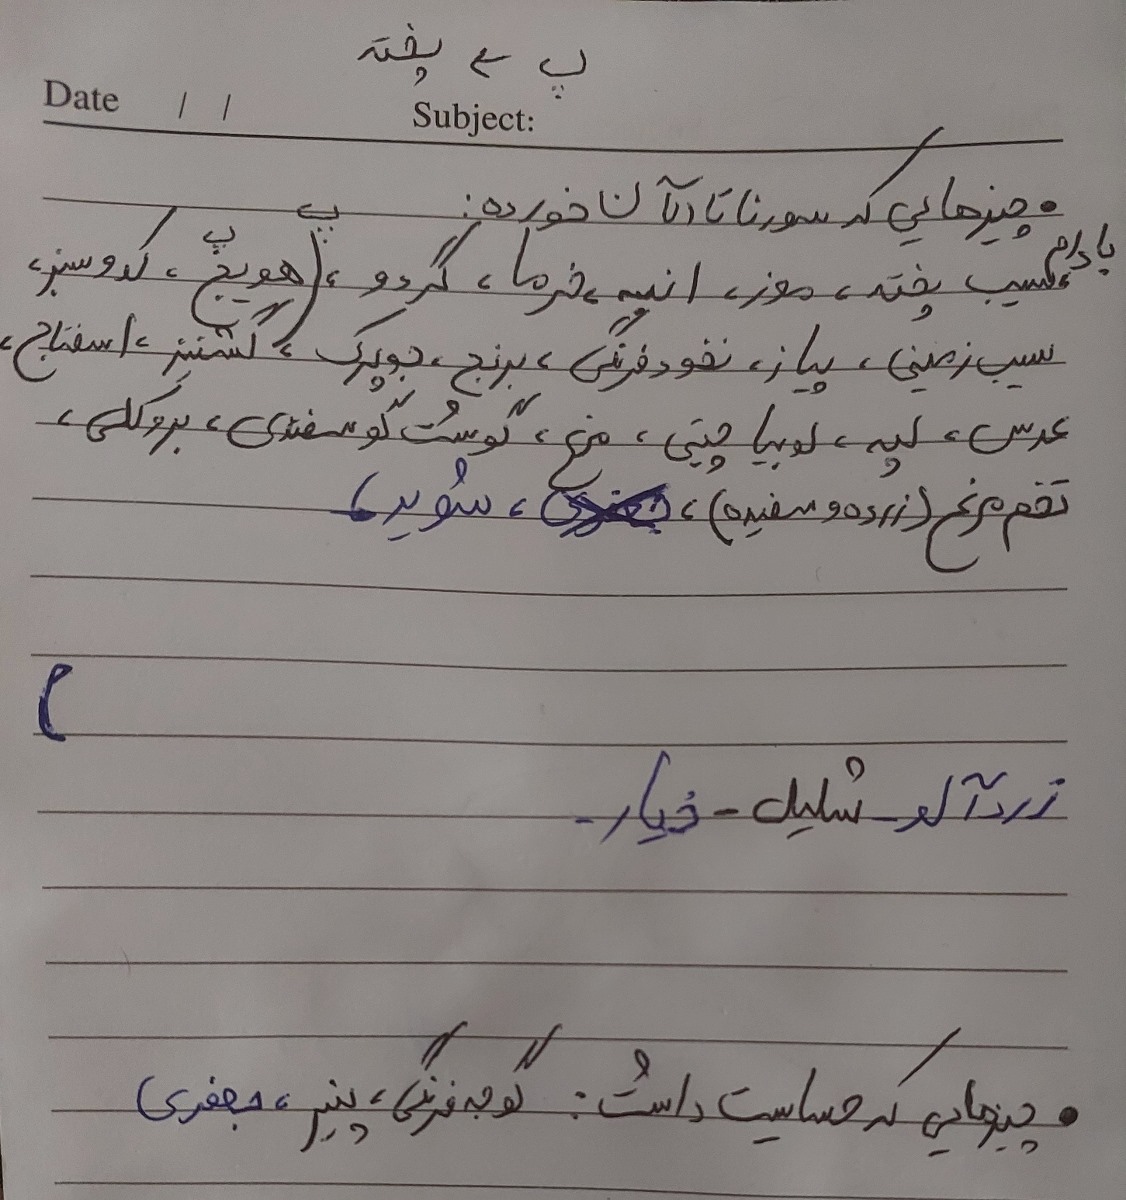 پ ← پخته
Date / /
Subject:
• چیزهایی که سورنا تا الآن خورده:
بادام
، سیب پخته، موز، انبه، خرما، گردو، (هویج پ، کدو سبز،
پ
سیب زمینی، پیاز، نخود فرنگی، برنج، جوپرک، گشنیز، اسفناج،
عدس، لپه، لوبیا چیتی، مرغ، گوشت گوسفندی، بروکلی،
تخم مرغ (زرده و سفیده)، جعفری، شوید،
(
زردآلو - شلیل - خیار -
• چیزهایی که حساسیت داشت: گوجه فرنگی، پنیر، جعفری